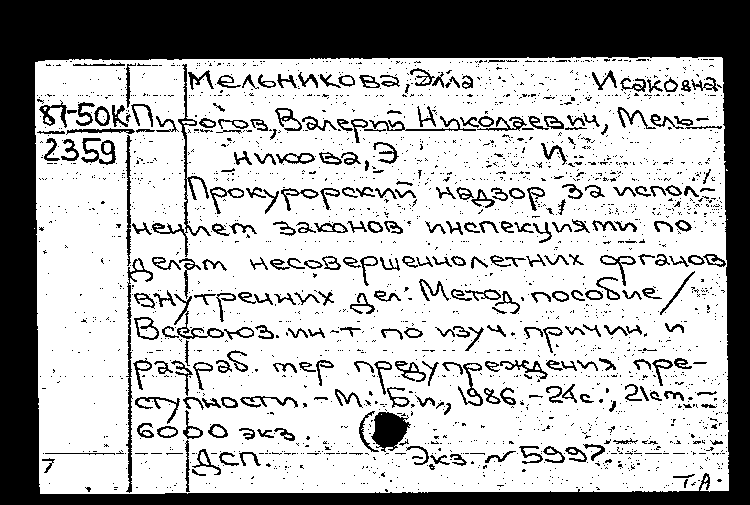 Мельникова, Элла Исаковна
87-50К Пирогов, Валерий Николаевич, Мель-
2359 никова, Э И.
Прокурорский надзор за испол-
нением законов инспекциями по
делам несовершеннолетних органов
внутренних дел: Метод. пособие /
Всесоюз. ин-т по изуч. причин. и
разраб. мер предупреждения пре-
ступности. - М.: Б.и., 1986. - 24с.; 21см. -
6000 экз.
7 ДСП. Экз. № 5997.
Т.А.